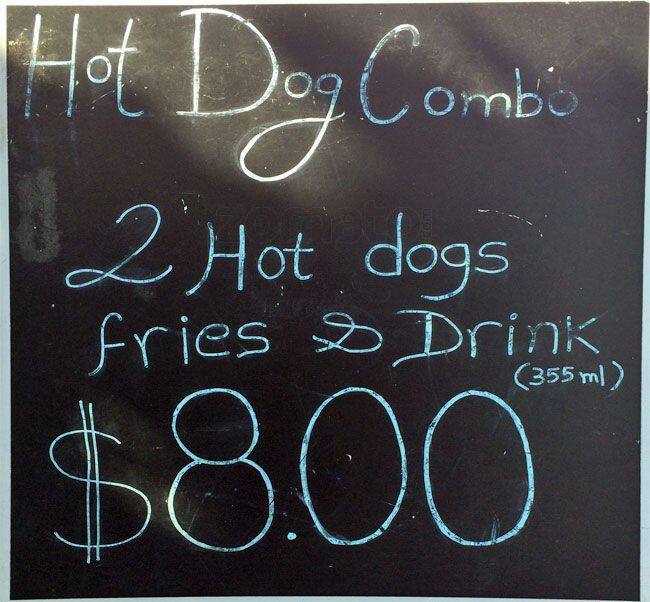 Hot Dog Combo
zomato
2 Hot dogs
fries & Drink
(355 ml)
$8.00